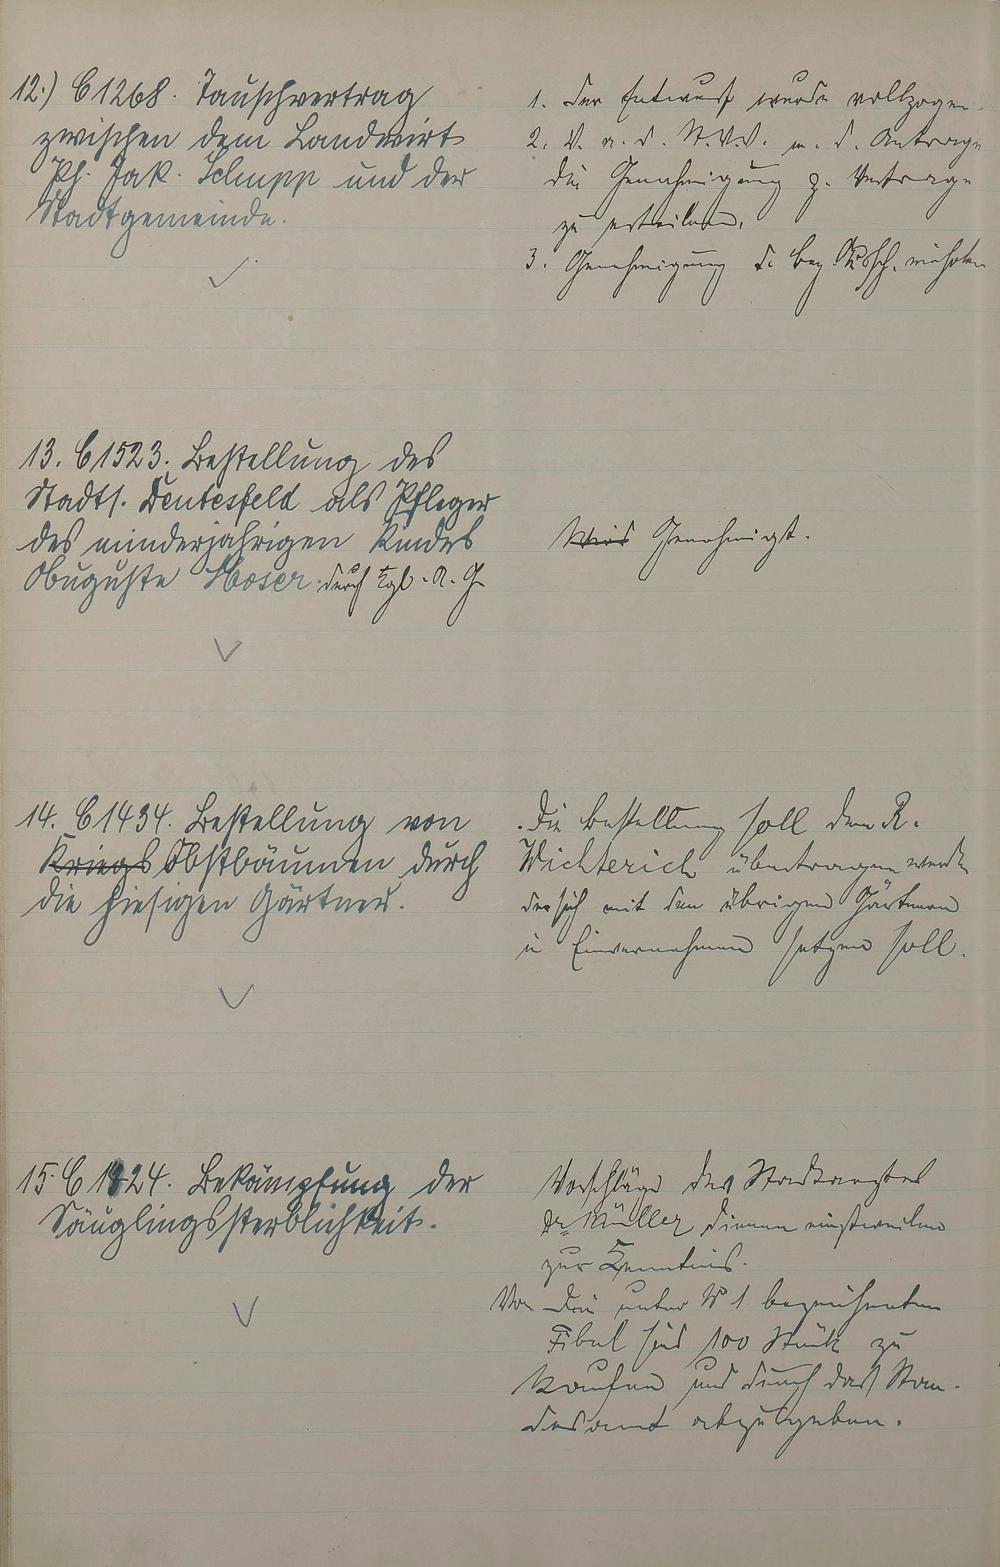 12.) C 1268. Tauschvertrag
zwischen dem Landwirt
Ph. Jak. Schupp und der
Stadtgemeinde.
1. Der Entwurf wurde vollzogen.
2. V. a. d. K.V.V. m. d. Antrage
die Genehmigung z. Vertrage
zu erteilen.
3. Genehmigung d. Bez.
13. C 1523. Bestellung des
Stadts. Deutesfeld als Pfleger
des minderjährigen Kindes
Auguste Moser durch Kgl. A. G.
Wird Genehmigt.
14. C 1434. Bestellung von
Kriegs Obstbäumen durch
die hiesigen Gärtner.
Die Bestellung soll dem R.
Wichterich übertragen werden
der sich mit den übrigen Gärtnern
in Einvernehmen setzen soll.
15. C 1824. Bekämpfung der
Säuglingssterblichkeit.
Vorschläge des Stadtarztes
Dr. Müller dienen einstweilen
zur Kenntnis.
Von der unter No 1 bezeichneten
Fibel sind 100 Stück zu
kaufen und durch das Stan-
desamt abzugeben.